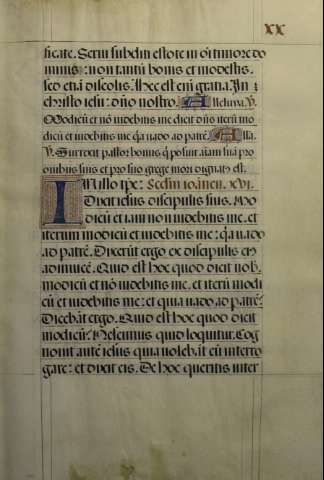 XX
ficate. Serui subditi estote in oi timore do
minis: non tantũ bonis et modestis.
sed etiã discolis. hec est eni gratia. In
christo iesu: dño nostro. Alleluya. V.
Modicũ et nõ uidebitis me dicit dñs iterũ mo
dicũ et uidebitis me q̃a uado ad patrẽ. Alla.
V. Surrexit pastor bonus q̃ posuit aĩam suã pro
ouibus suis et pro suo grege mori dignatus est.
IN illo tp̃e: Scdm ioãnem. XVI.
Dixit iesus discipulis suis. Mo
dicũ et iam non uidebitis me. et
iterum modicũ et uidebitis me: q̃a uado
ad patrẽ. Dixerũt ergo ex discipulis eis
ad inuicẽ. Quid est hoc quod dicit nob.
modicũ et nõ uidebitis me. et iterũ modi
cũ et uidebitis me: et quia uado ad patrẽ?
Dicebãt ergo. Quid est hoc quod dicit
modicũ? Nescimus quid loquitur. Cog
nouit autẽ iesus quia uoleb̃at eũ interro
gare: et dixit eis. De hoc queritis inter